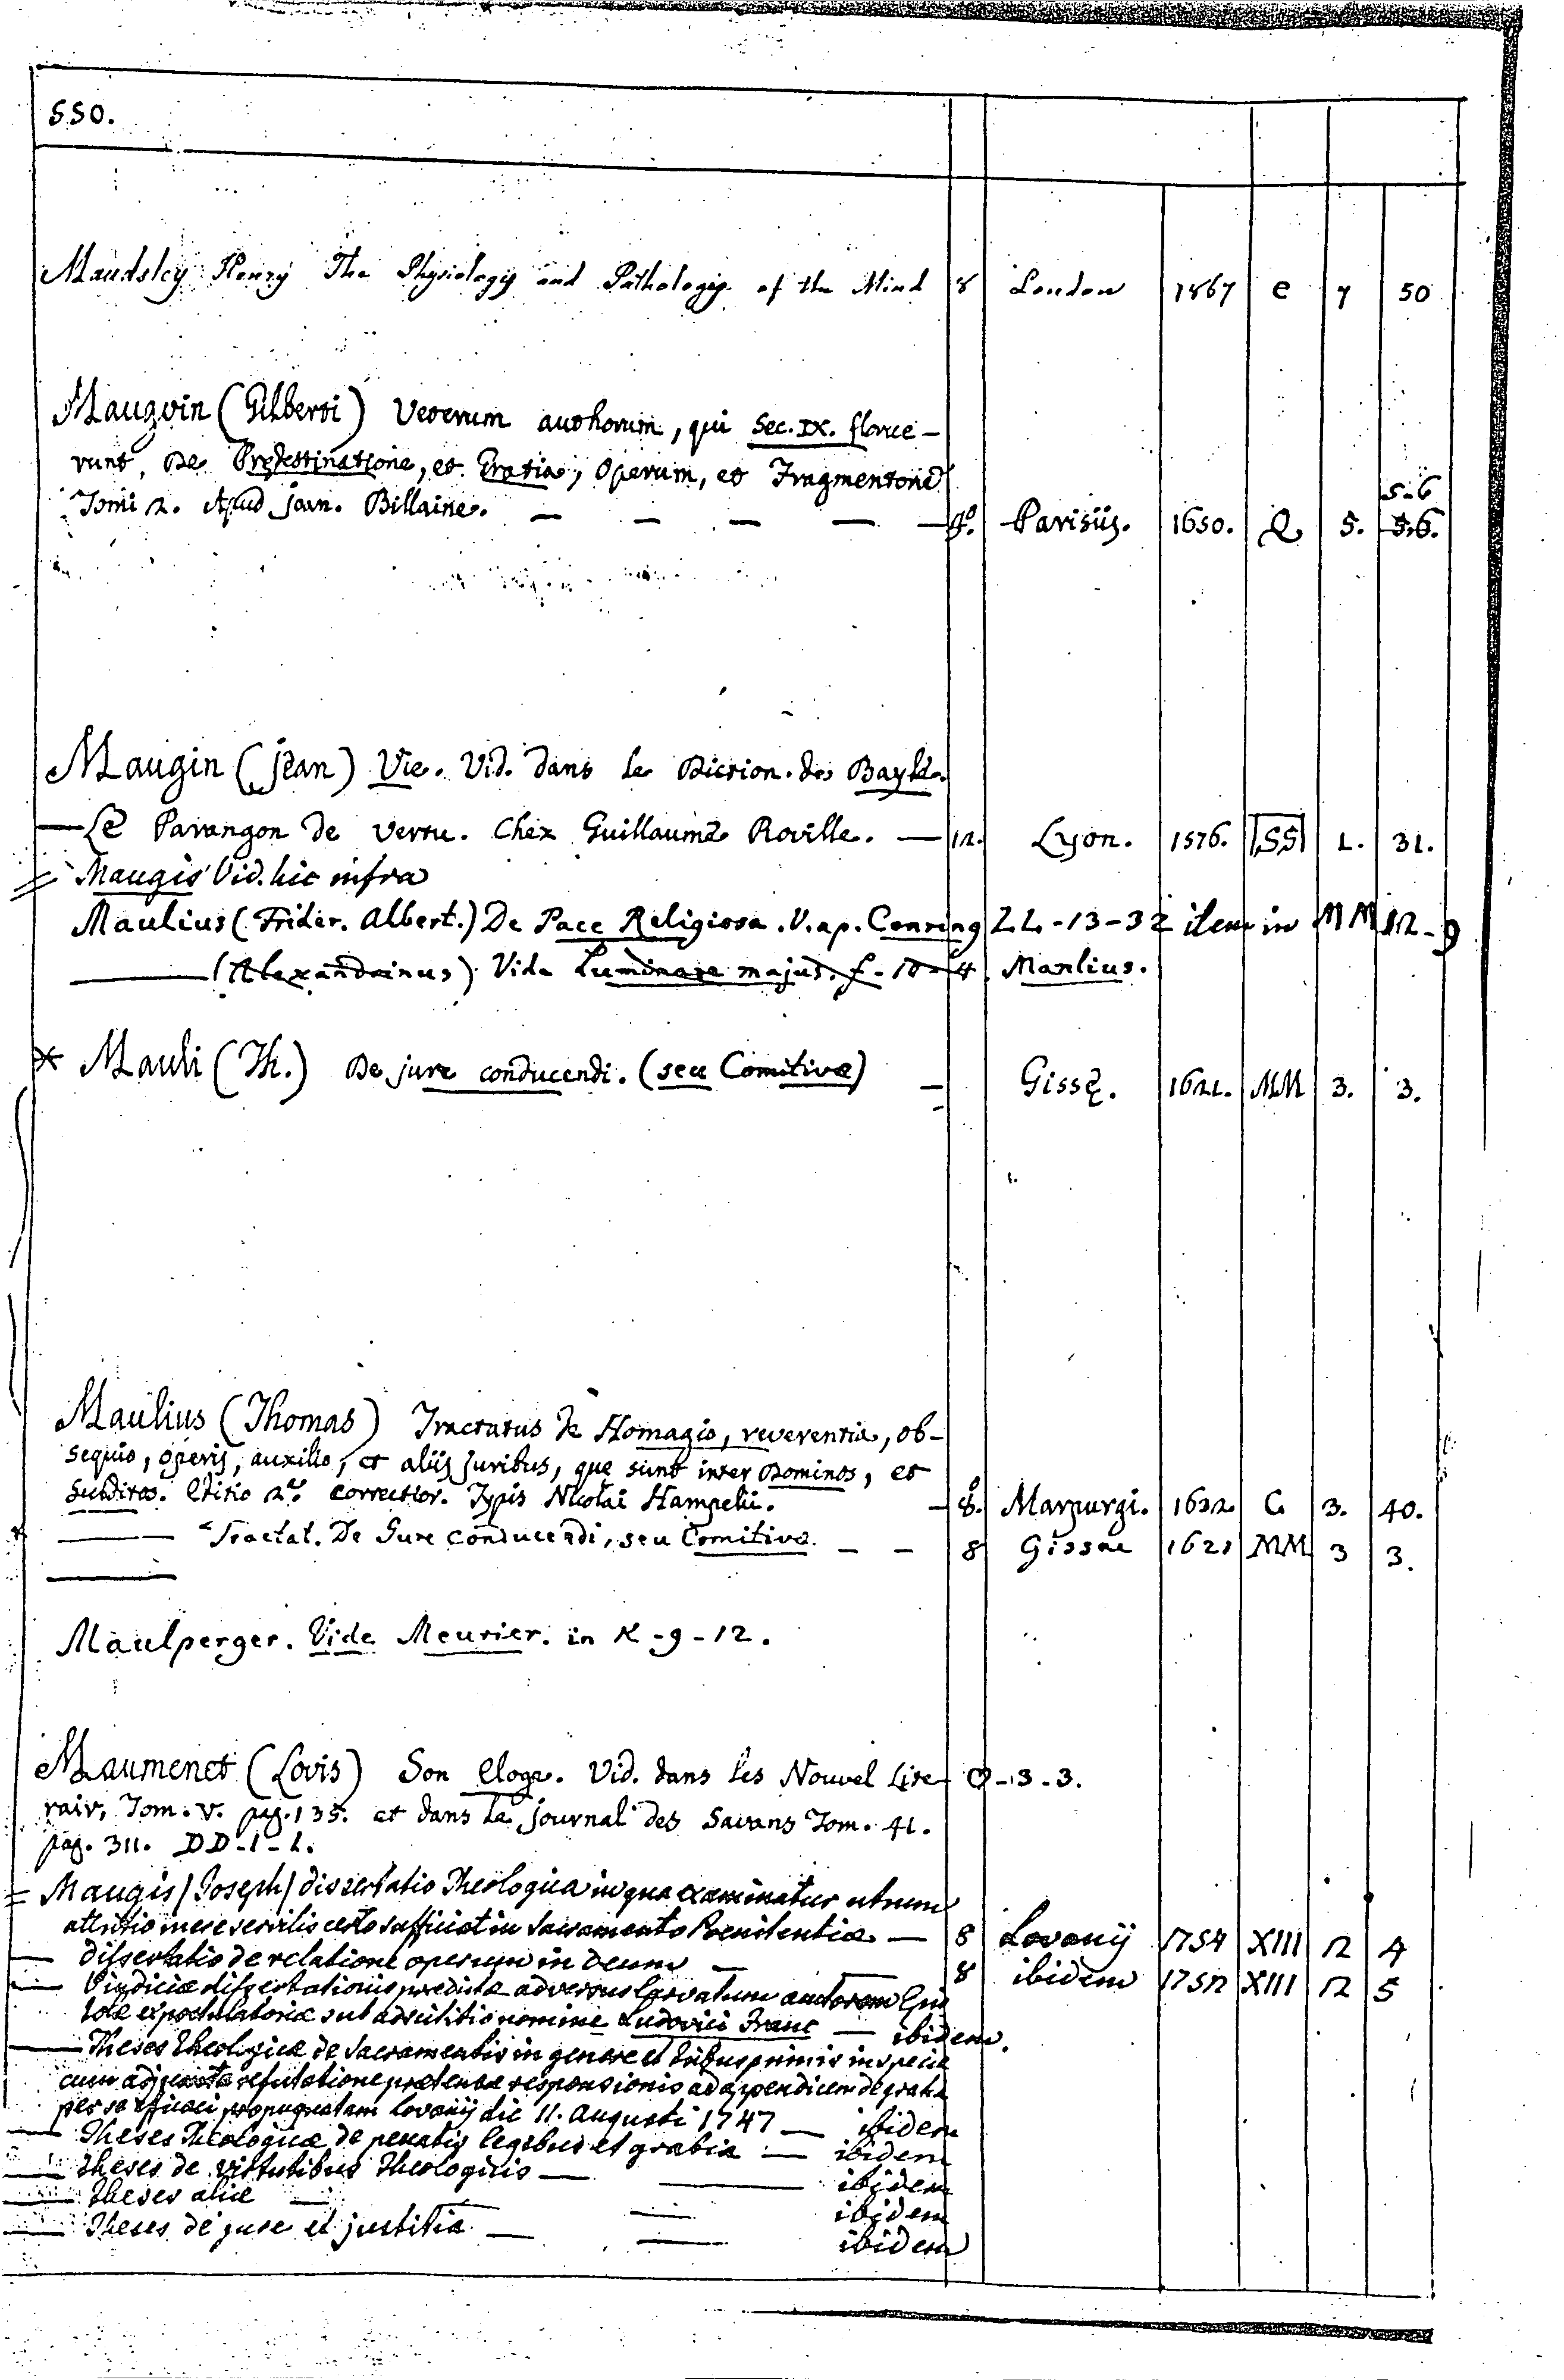 550.
Maudsley Henry The Physiology and Pathology of the Mind 8 London 1867 e 7 50
Mauguin (Gilberti) Veterum authorum, qui Sec. IX. florue-
runt, De Prędestinatione, et Gratia, Operum, et Fragmentorũ
5-6
Tomi 2. Apud Joan. Billaine. — — — — — 4.° Parisiis. 1650. Q 5. 5.6.
Maugin (Jean) Vie. Vid. dans le Diction. des Bayle.
— Le Parangon de Vertu. Chez Guillaume Roville. — 12. Lyon. 1576. SS 1. 31.
= Maugis Vid. hic infra
Maulius (Frider. Albert.) De Pace Religiosa. V. ap. Conring LL-13-32 item in MM 12-9
— (Alexandrinus) Vide Luminare majus. f-10-4 Manlius.
* Mauli (Th.) De jure conducendi. (seu Comitivæ) — Gissę. 1621. MM 3. 3.
Maulius (Thomas) Tractatus de Homagio, reverentia, ob-
sequio, operis, auxilio, et aliis Juribus, quę sunt inter Dominos, et
Subditos. Editio 2.a correctior. Typis Nicolai Hampelii. — 8.° Marpurgi. 1632. G 3. 40.
— Tractat. De Jure conducendi, seu Comitiva. — — 8 Gissae 1621 MM 3 3.
Maulperger. Vide Meurier. in K-9-12.
Maumenet (Lovis) Son Eloge. Vid. dans les Nouvel Lite- Q-13-3.
rair, Tom. V. pag. 135. et dans le Journal des Savans Tom. 41.
pag. 311. DD-1-1.
= Maugis / Joseph / dissertatio Theologica in qua examinatur utrum
attritio mere servilis cum Sacramento Poenitentiæ — 8 Lovanij 1754 XIII 12 4
— dissertatio de relatione operum in Deum — — 8 ibidem 1752 XIII 12 5
— Vindiciæ dissertationis prædictæ adversus larvatum auctorem Epis
tolæ expostulatoriæ sub adscititio nomine Ludovici Franc — ibidem.
— Theses theologicæ de Sacramentis in genere et tribus primis in specie
cum adjuncta refutatione prætensæ responsionis ad appendicem de gratia
per se efficaci propugnatam Lovanij die 11. Augusti 1747 — ibidem
— Theses Theologicæ de peccatis legibus et gratia — ibidem
— theses de virtutibus Theologicis — — ibidem
— theses aliæ — — ibidem
— Theses de jure et justitia — — ibidem